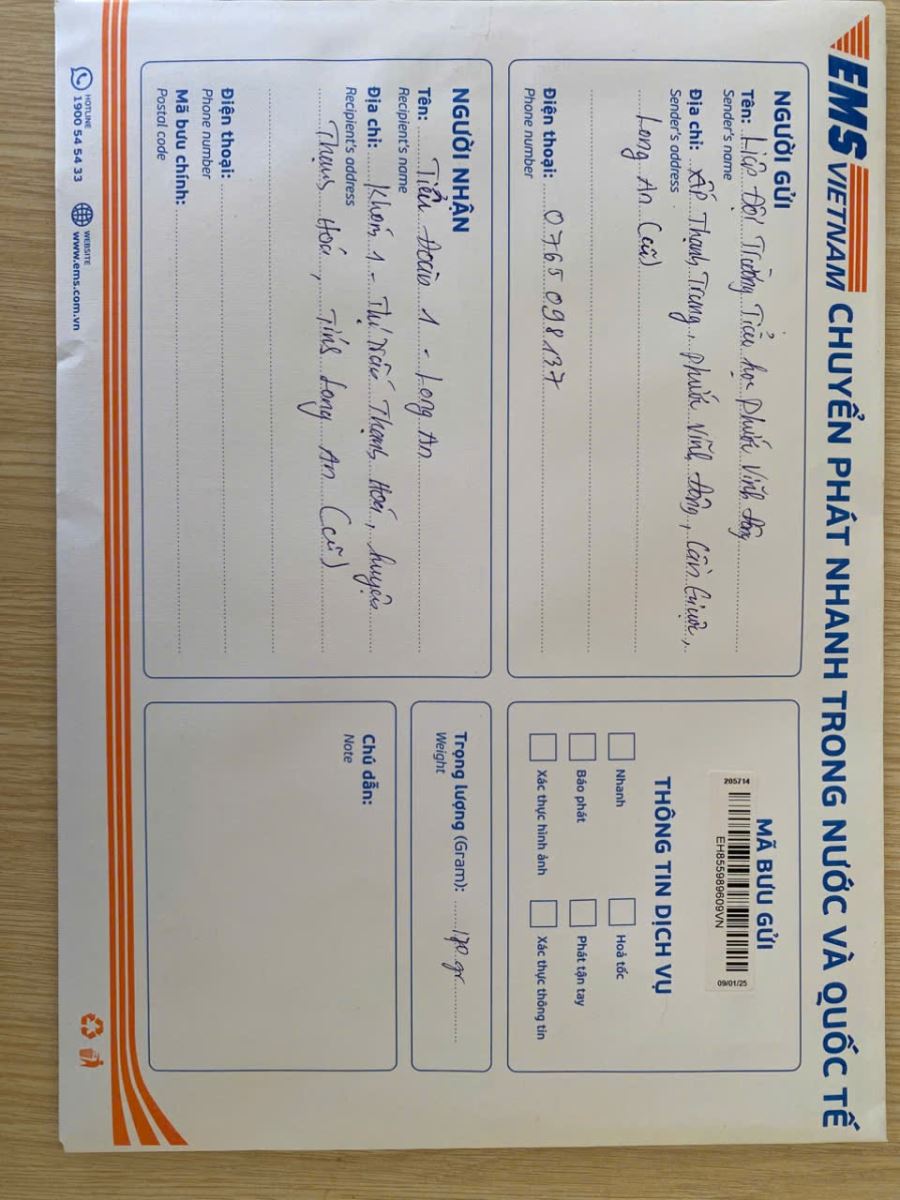 EMS VIETNAM CHUYỂN PHÁT NHANH TRONG NƯỚC VÀ QUỐC TẾ
NGƯỜI GỬI
Tên: Liên Đội Trường Tiểu học Phước Vĩnh Đông
Sender's name
Địa chỉ: Ấp Thạnh Trung, Phước Vĩnh Đông, Cần Giuộc,
Sender's address
Long An (cũ)
Điện thoại: 0765 098137
Phone number
MÃ BƯU GỬI
205714
EH855989609VN
09/01/25
THÔNG TIN DỊCH VỤ
Nhanh Hoả tốc
Báo phát Phát tận tay
Xác thực hình ảnh Xác thực thông tin
NGƯỜI NHẬN
Tên: Tiểu Đoàn 1 - Long An
Recipient's name
Địa chỉ: Khóm 1 - Thị Trấn Thạnh Hoá, huyện
Recipient's address
Thạnh Hoá, Tỉnh Long An (cũ)
Điện thoại:
Phone number
Mã bưu chính:
Postal code
Trọng lượng (Gram): 170 gr
Weight
Chú dẫn:
Note
HOTLINE
1900 54 54 33
WEBSITE
www.ems.com.vn